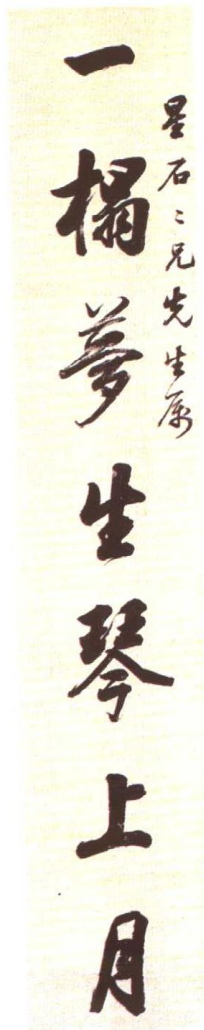 星石二兄先生属
一榻夢生琴上月